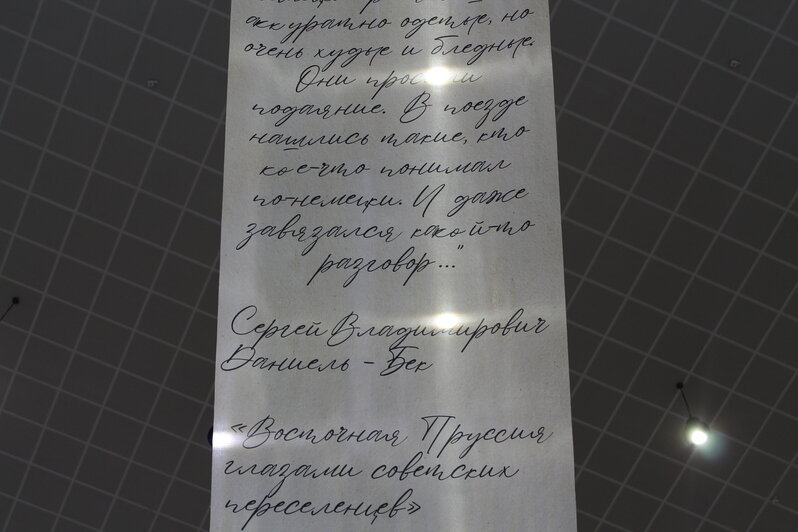 аккуратно одетые, но
очень худые и бледные.
Они просили
подаяние. В поезде
нашлись такие, кто
кое-что понимал
по-немецки. И даже
завязался какой-то
разговор..."
Сергей Владимирович
Даниель - Бек
«Восточная Пруссия
глазами советских
переселенцев»